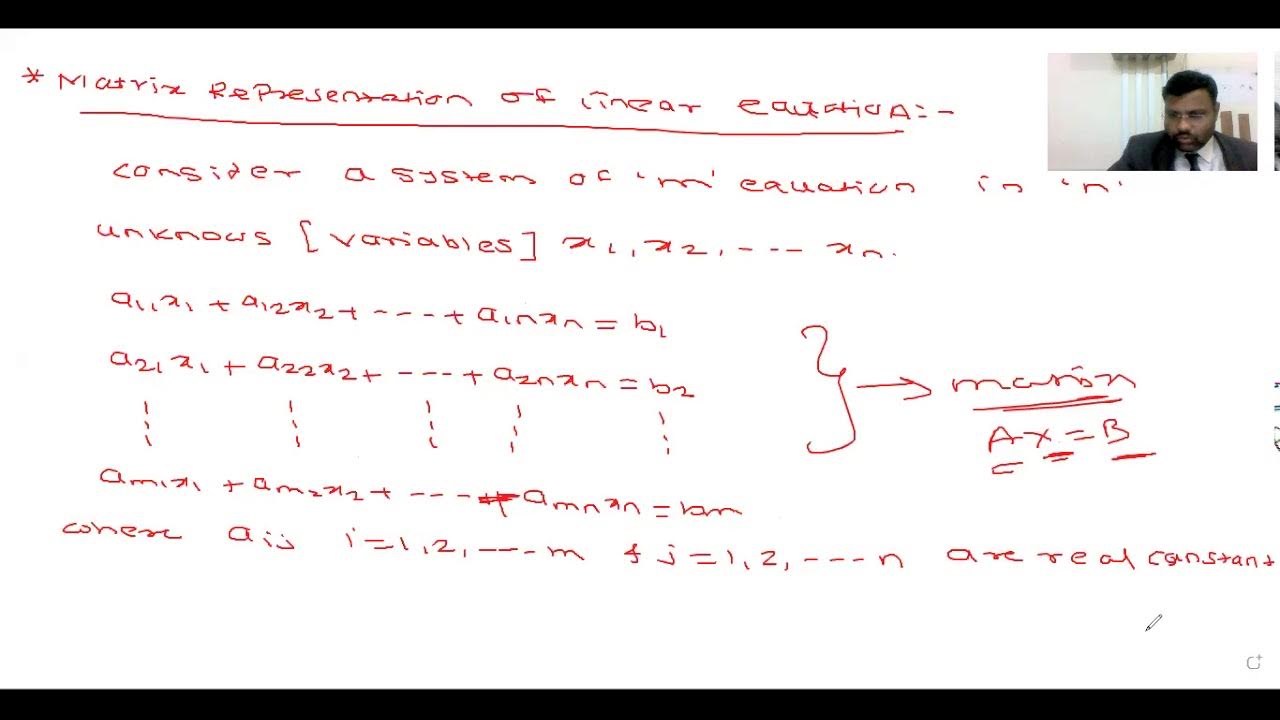 * Matrix Representation of linear equation:-
consider a system of 'm' equation in 'n'
unknows [variables] x₁, x₂, ---- xₙ.
a₁₁x₁ + a₁₂x₂ + ---- + a₁ₙxₙ = b₁
a₂₁x₁ + a₂₂x₂ + ---- + a₂ₙxₙ = b₂
} → matrix
AX = B
aₘ₁x₁ + aₘ₂x₂ + ---- + aₘₙxₙ = bₘ
where aᵢⱼ i=1,2,----m & j=1,2,----n are real constant